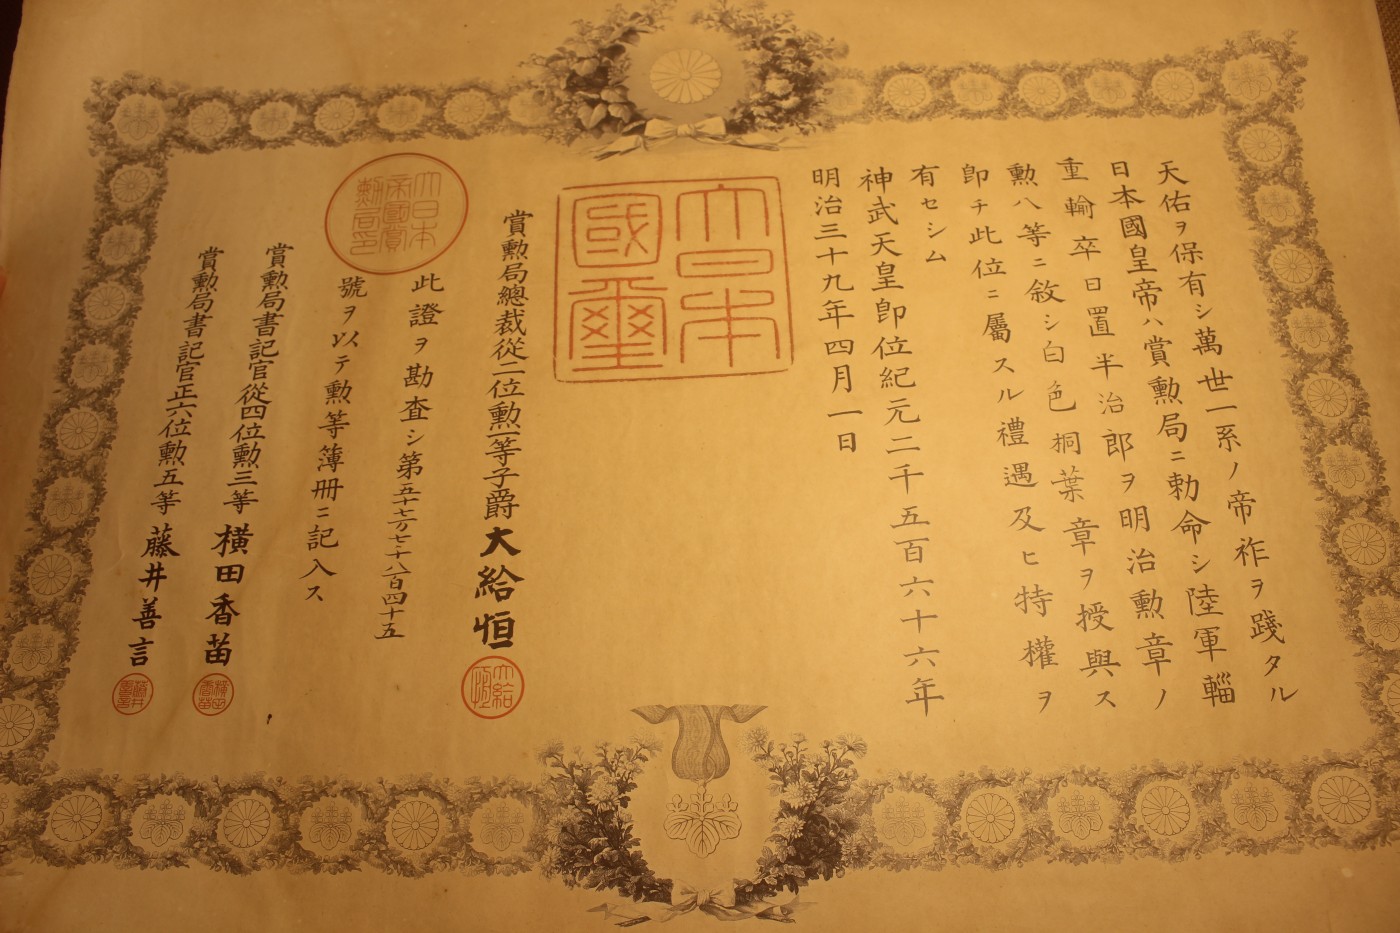 天佑ヲ保有シ萬世一系ノ帝祚ヲ踐タル
日本國皇帝ハ賞勳局ニ勅命シ陸軍輜
重輸卒日置半治郎ヲ明治勳章ノ
勳八等ニ敘シ白色桐葉章ヲ授與ス
卽チ此位ニ屬スル禮遇及ヒ特權ヲ
有セシム
神武天皇卽位紀元二千五百六十六年
明治三十九年四月一日
大日本
國璽
賞勳局總裁從二位勳一等子爵大給恒
大給
恒
大日本
帝國賞
勳局印
此證ヲ勘査シ第五十七万七千八百四十五
號ヲ以テ勳等簿册ニ記入ス
賞勳局書記官從四位勳三等横田香苗
横田
香苗
賞勳局書記官正六位勳五等藤井善言
藤井
善言